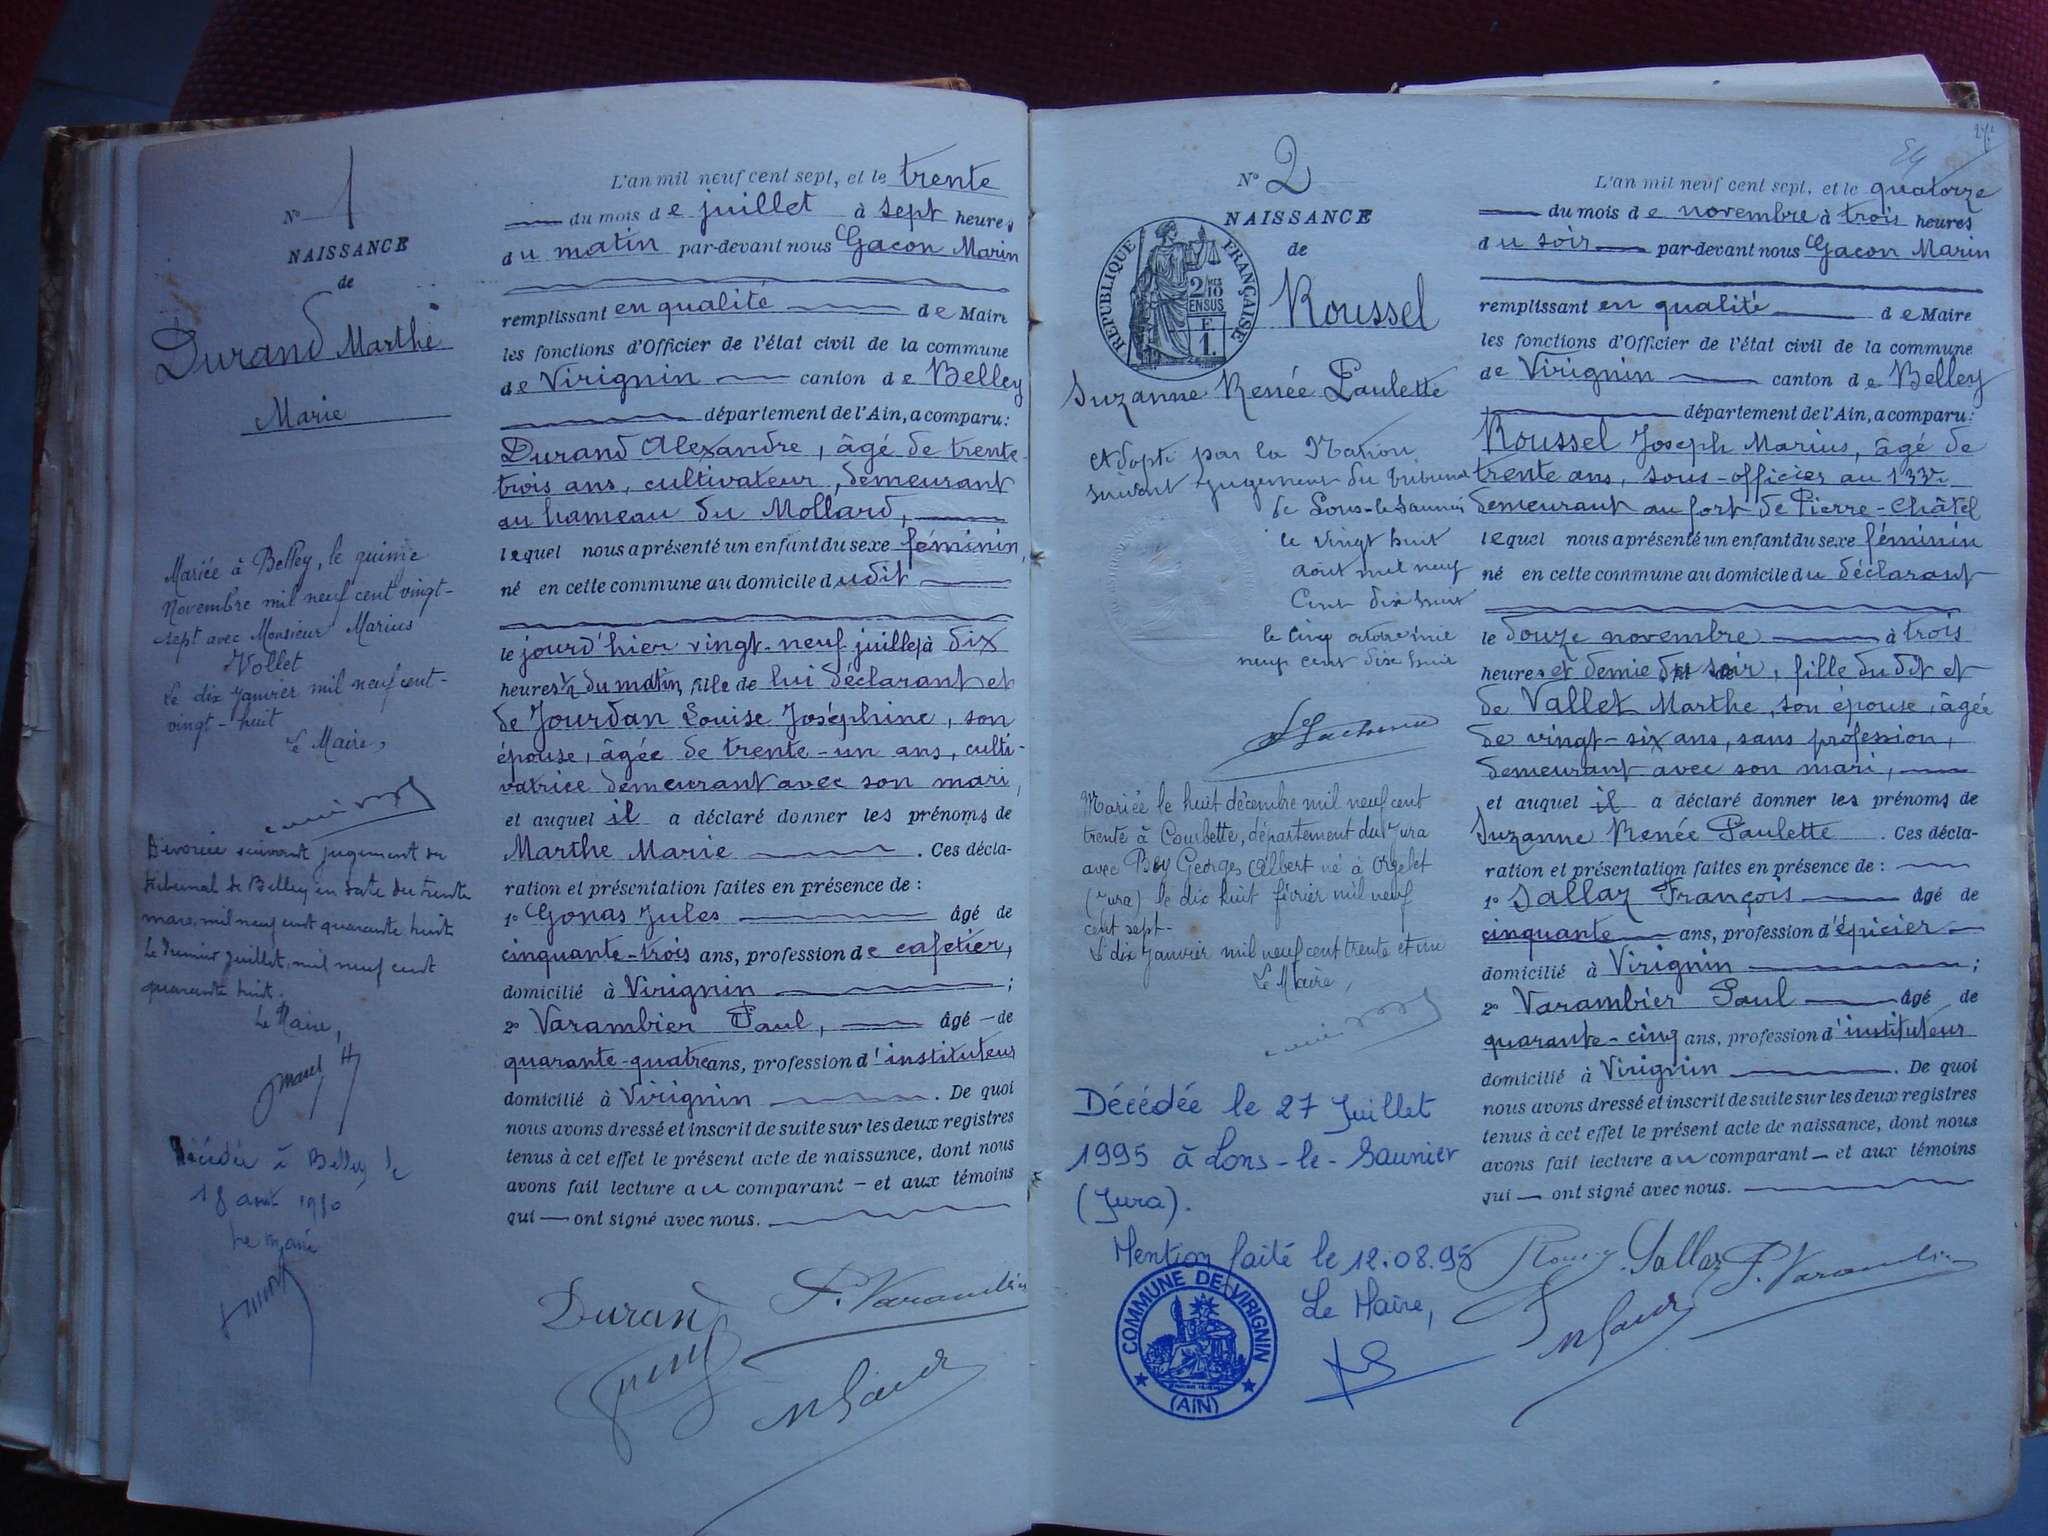 N° 1
NAISSANCE
de
Durand Marthe
Marie
Mariée à Belley, le quinze
Novembre mil neuf cent vingt-
sept avec Monsieur Marius
Vollet
Le dix Janvier mil neuf cent-
vingt-huit
Le Maire,
Divorcée suivant jugement du
tribunal de Belley en date du trente
mars mil neuf cent quarante huit
Le premier juillet, mil neuf cent
quarante huit.
Le Maire,
Décédée à Belley le
18
Le Maire
L'an mil neuf cent sept, et le trente
du mois de juillet à sept heures
du matin par-devant nous Gacon Marin
remplissant en qualité de Maire
les fonctions d'Officier de l'état civil de la commune
de Virignin canton de Belley
département de l'Ain, a comparu:
Durand Alexandre, âgé de trente-
trois ans, cultivateur, demeurant
au hameau du Mollard,
lequel nous a présenté un enfant du sexe féminin,
né en cette commune au domicile dudit
le jourd'hier vingt-neuf juillet à dix
heures ½ du matin, fille de lui déclarant et
de Jourdan Louise Joséphine, son
épouse, âgée de trente-un ans, culti-
vatrice demeurant avec son mari,
et auquel il a déclaré donner les prénoms de
Marthe Marie . Ces décla-
ration et présentation faites en présence de :
1° Gonas Jules âgé de
cinquante-trois ans, profession de cafetier,
domicilié à Virignin ;
2° Varambier Paul, âgé de
quarante-quatre ans, profession d'instituteur
domicilié à Virignin . De quoi
nous avons dressé et inscrit de suite sur les deux registres
tenus à cet effet le présent acte de naissance, dont nous
avons fait lecture au comparant — et aux témoins
qui — ont signé avec nous.
Durand P. Varambier
MGacon
N° 2
NAISSANCE
de
RÉPUBLIQUE FRANÇAISE
2/10 EN SUS
1F.
Roussel
Suzanne Renée Paulette
Adopté par la Nation
suivant jugement du tribunal
de Lons-le-Saunier
le vingt huit
août mil neuf
cent dix huit
le cinq octobre mil
neuf cent dix huit
Mariée le huit décembre mil neuf cent
trente à Courbette, département du Jura
avec Boy Georges Albert né à Orgelet
(Jura) le dix huit février mil neuf
cent sept-
Le dix Janvier mil neuf cent trente et un
Le Maire,
Décédée le 27 Juillet
1995 à Lons-le-Saunier
(Jura).
Mention faite le 12.08.95
Le Maire,
COMMUNE DE VIRIGNIN
(AIN)
L'an mil neuf cent sept, et le quatorze
du mois de novembre à trois heures
du soir par-devant nous Gacon Marin
remplissant en qualité de Maire
les fonctions d'Officier de l'état civil de la commune
de Virignin canton de Belley
département de l'Ain, a comparu:
Roussel Joseph Marius, âgé de
trente ans, sous-officier au 133e
demeurant au fort de Pierre-Châtel
lequel nous a présenté un enfant du sexe féminin
né en cette commune au domicile du déclarant
le douze novembre à trois
heures et demie du soir, fille du dit et
de Vallet Marthe, son épouse, âgée
de vingt-six ans, sans profession,
demeurant avec son mari,
et auquel il a déclaré donner les prénoms de
Suzanne Renée Paulette . Ces décla-
ration et présentation faites en présence de :
1° Sallaz François âgé de
cinquante ans, profession d'épicier
domicilié à Virignin ;
2° Varambier Paul âgé de
quarante-cinq ans, profession d'instituteur
domicilié à Virignin . De quoi
nous avons dressé et inscrit de suite sur les deux registres
tenus à cet effet le présent acte de naissance, dont nous
avons fait lecture au comparant — et aux témoins
qui — ont signé avec nous.
Sallaz P. Varambier
MGacon